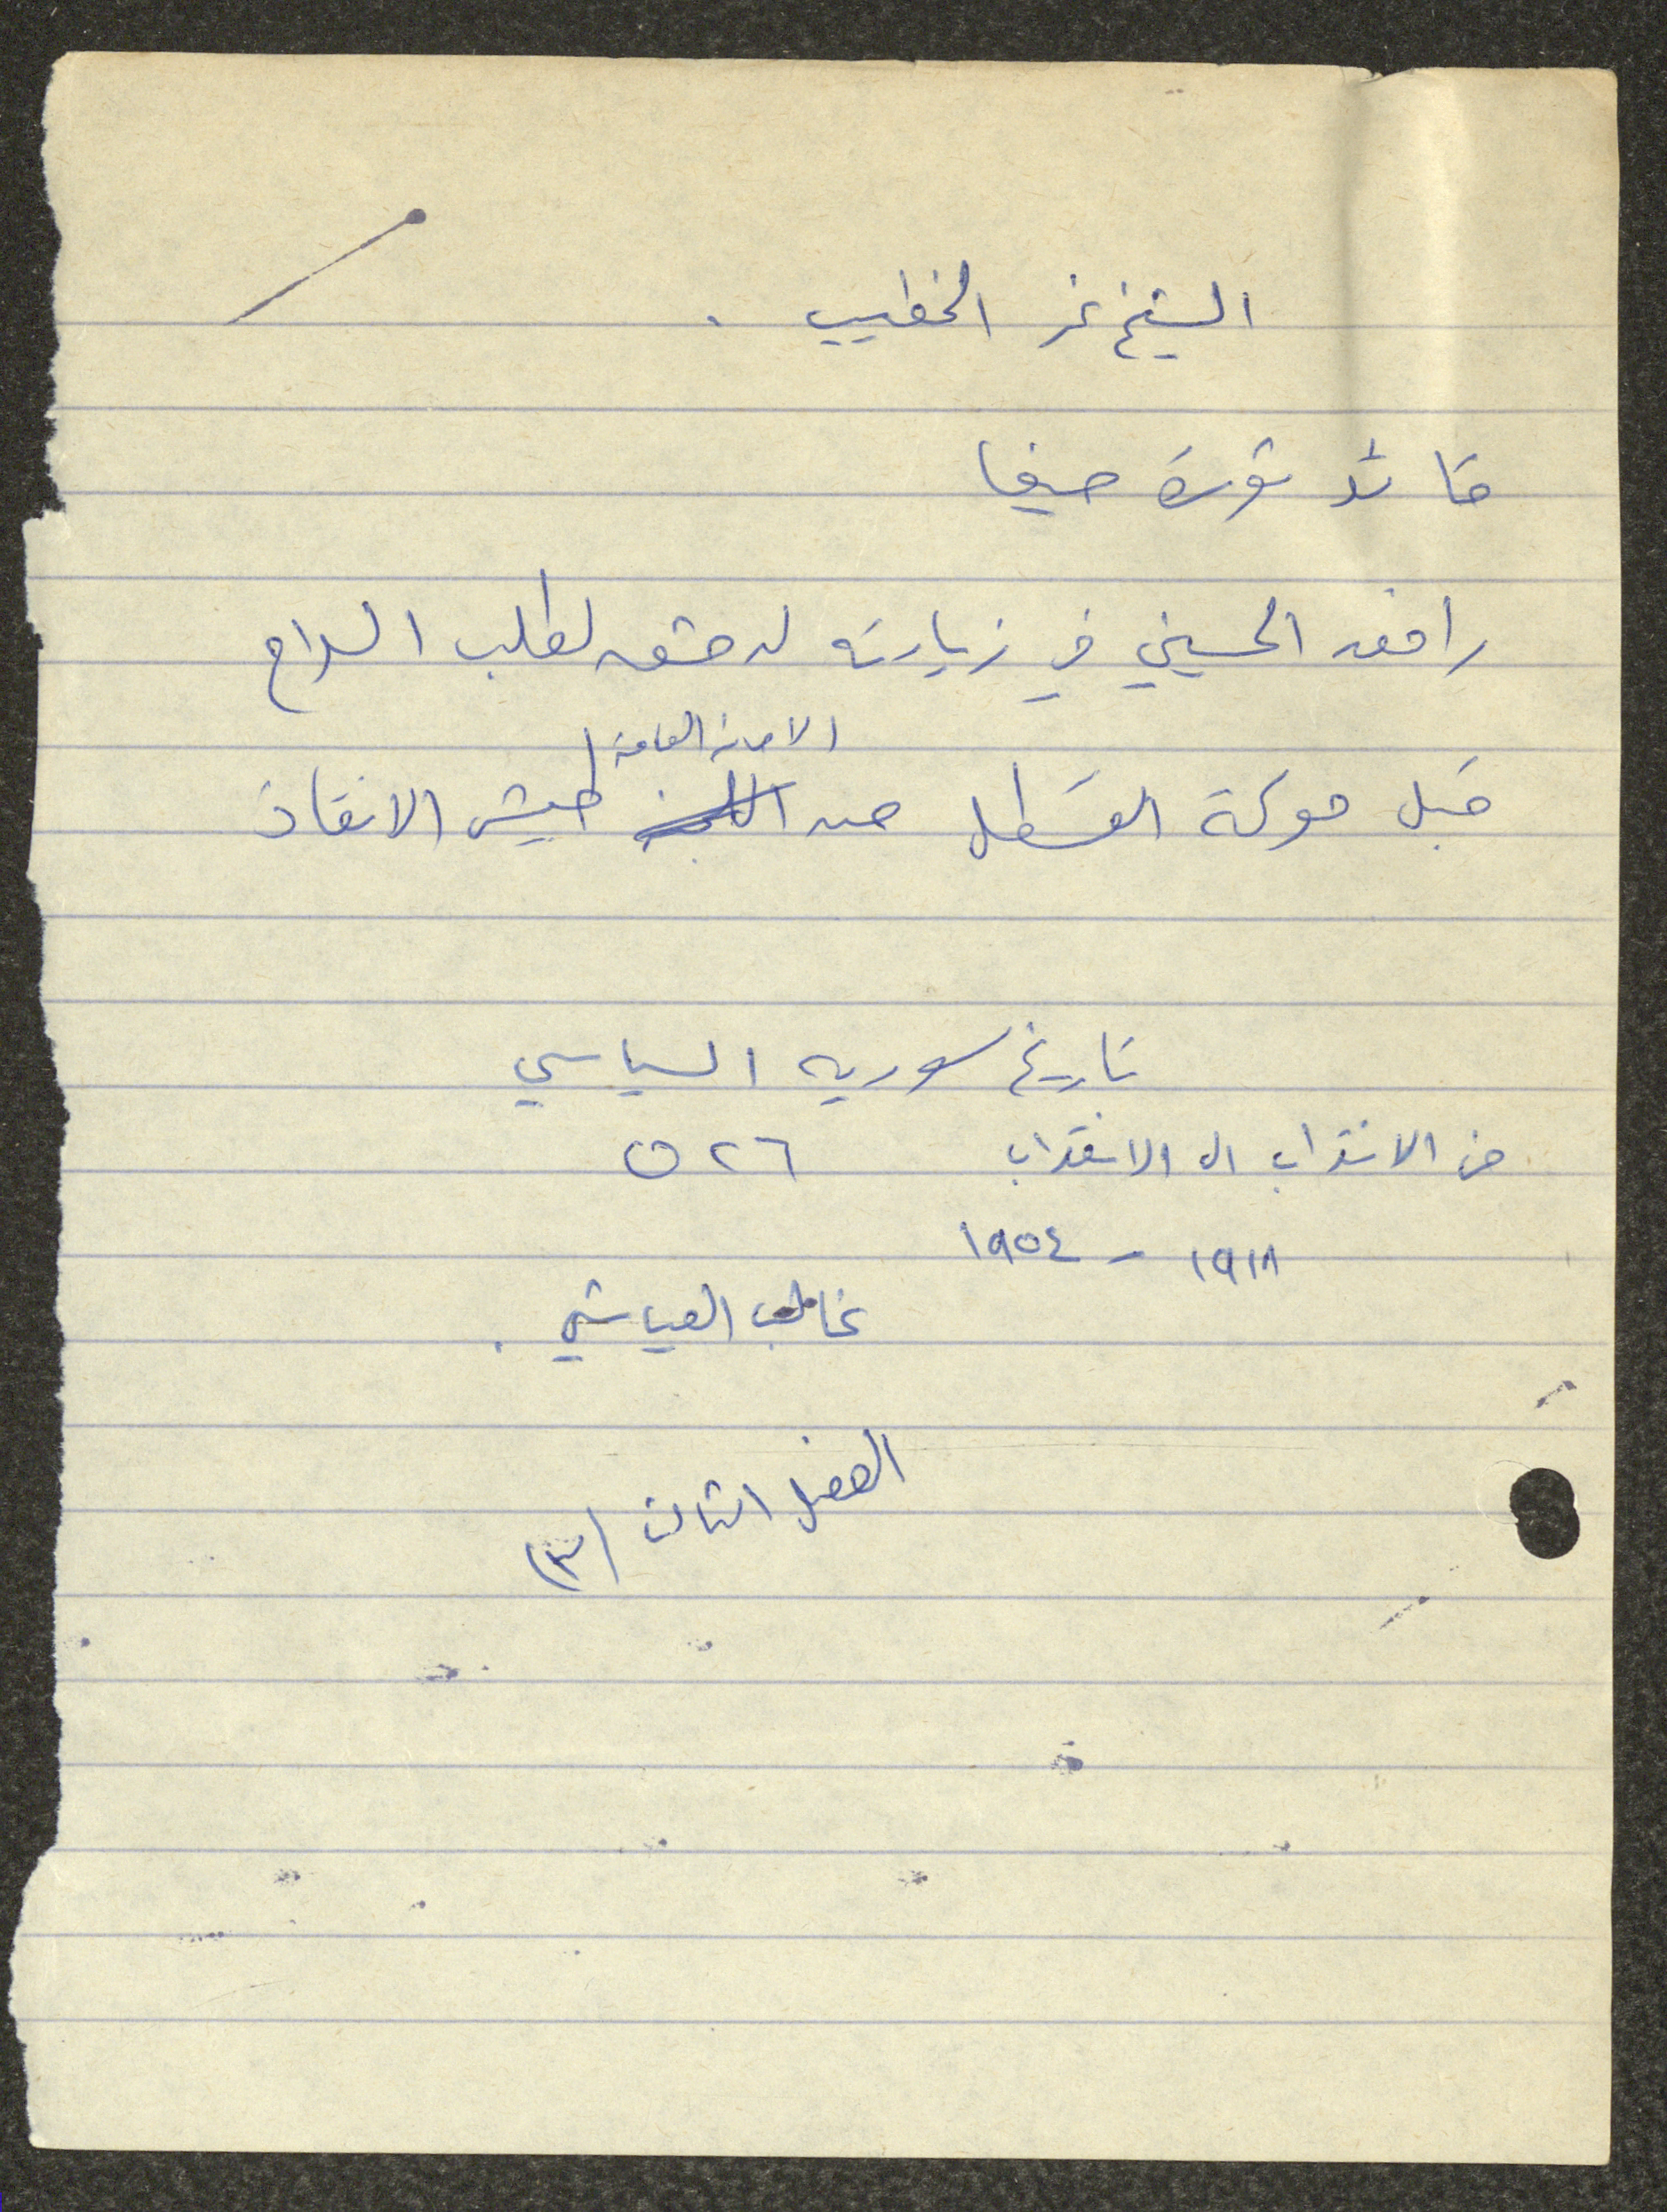 الشيخ نمر الخطيب .
قائد ثورة حيفا
رافق الحسيني في زيارته لدمشق لطلب السلاح
قبل معركة القسطل من الامانة العامة لجيش الانقاذ
تاريخ سوريه السياسي
من الانتداب الى الانقلاب ٢٦ ص
١٩١٨ - ١٩٥٤
غالب العياشي .
الفصل الثالث (٣)